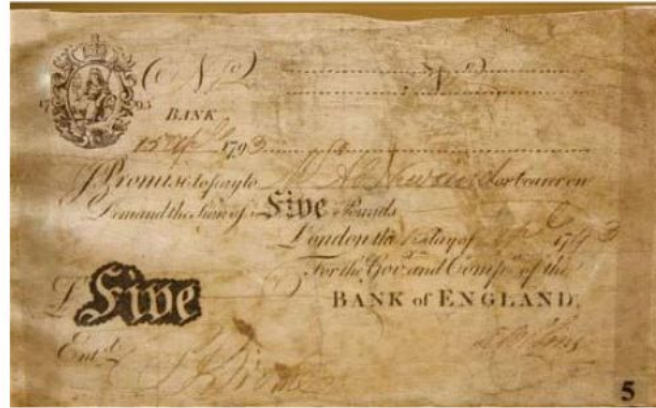 No 2 No 2
17 93
BANK
15 Apl 1793
I Promise to pay to Mr or bearer on
Demand the Sum of Five Pounds
London the 15 day of Apl 1793
For the Govr. and Compa. of the
BANK of ENGLAND.
£ Five
Entd.
5